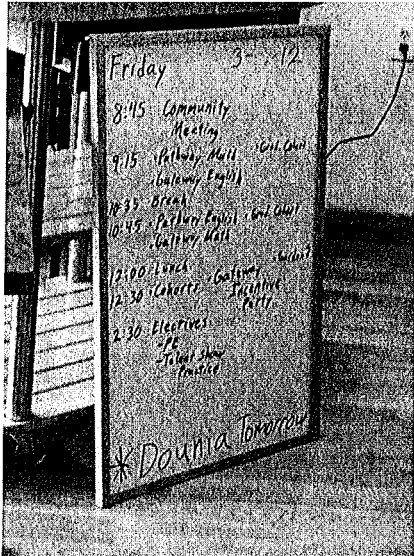 Friday 3-12
8:45 Community
Meeting
9:15 •Pathway Math •Grd. Cohort
•Gateway English
10:35 Break
10:45 •Pathway English •Grd. Cohort
•Gateway Math
12:00 Lunch
12:30 •Cohorts •Gateway
Incentive
Party
2:30 Electives
-PE
-Talent Show
Practice
*Dounia Tomorrow